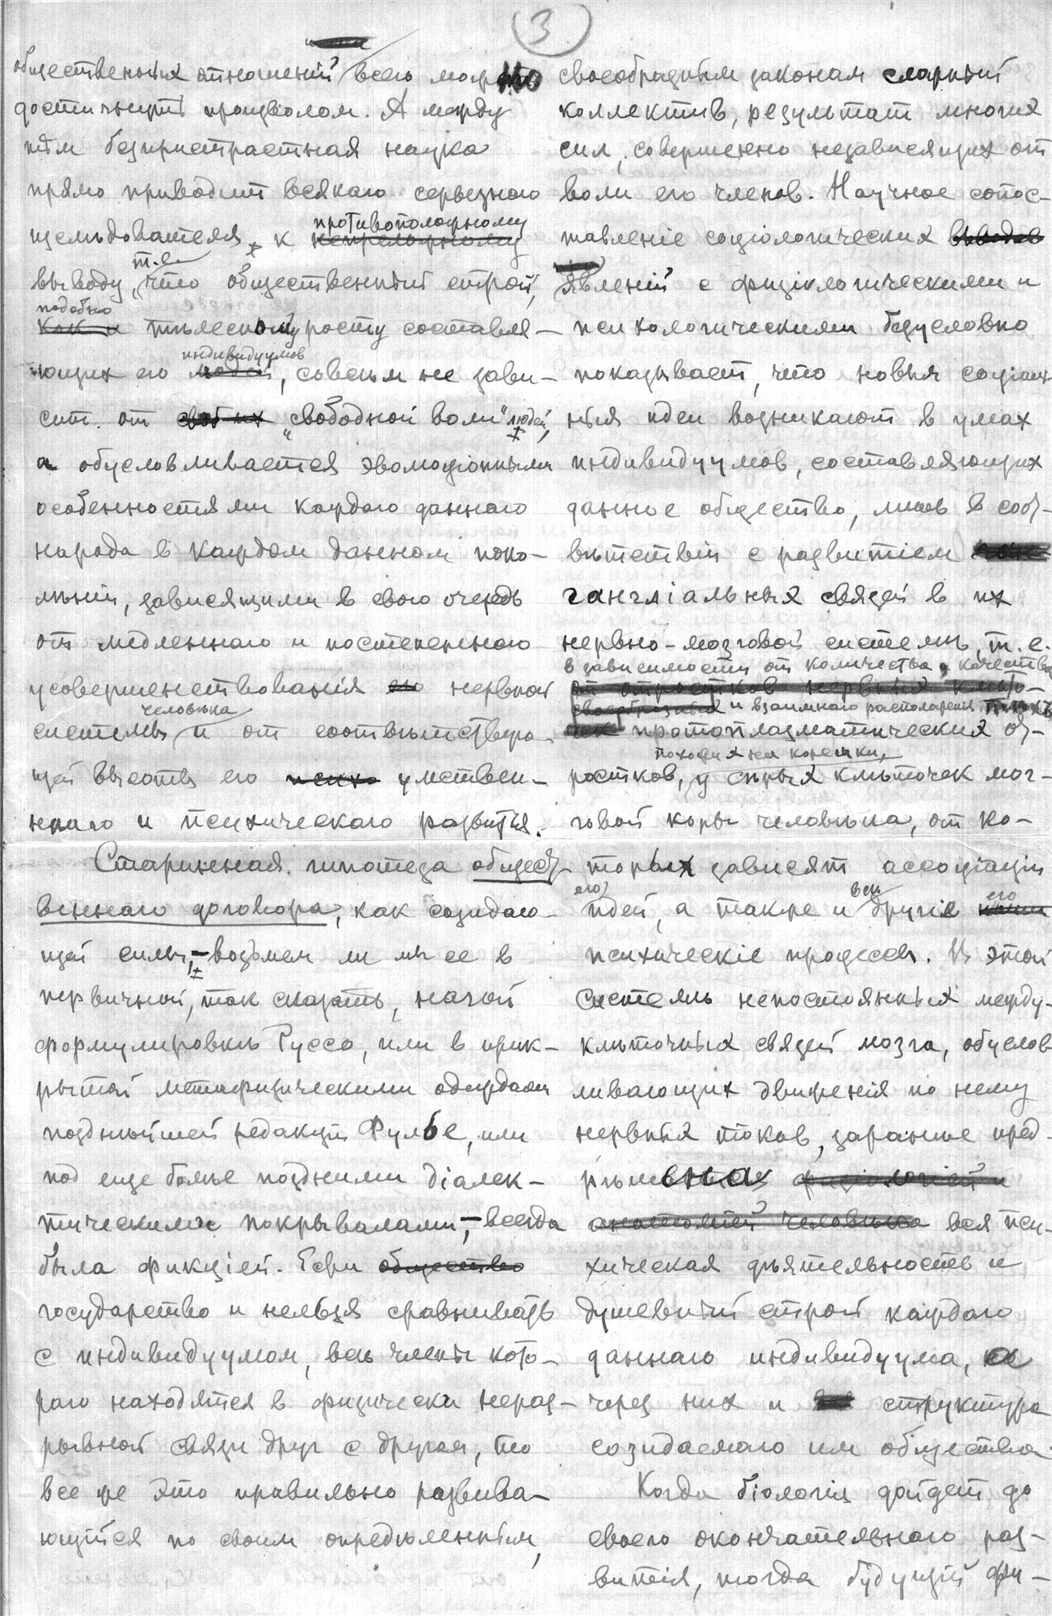 3
общественныхъ отношеній всего можно
достигнуть произволомъ. А между
тѣм безпристрастная наука
прямо приводит всякаго серьезнаго
изслѣдователя к противоположному
выводу, т.е. что общественный строй,
подобно тѣлесному росту составля-
ющих его индивидуумов, совсѣм не зави-
сит от „свободной воли“ людей,
а обусловливается эволюціонными
особенностями каждаго даннаго
народа в каждом данном поко-
лѣніи, зависящими в свою очередь
от медленнаго и постепеннаго
усовершенствованія нервной
системы человѣка и от соотвѣтствую-
щей высоты его умствен-
наго и психическаго развитія.
Старинная гипотеза общест-
веннаго договора, как созидаю-
щей силы,—возьмем ли мы ее в
первичной, так сказать, нагой
формулировкѣ Руссо, или в прик-
рытой метафизическими одеждами
позднѣйшей редакціи Фулье, или
под еще болѣе поздними діалек-
тическими покрывалами,—всегда
была фикціей. Если
государство и нельзя сравнивать
с индивидуумом, всѣ члены кото-
раго находятся в физически нераз-
рывной связи друг с другом, то
все же это правильно развива-
ющійся по своим опредѣленным,
своеобразным законам сложный
коллектив, результат многих
сил, совершенно независящих от
воли его членов. Научное сопос-
тавленіе соціологических
явленій с физіологическими и
психологическими безусловно
показывает, что новыя соціаль-
ныя идеи возникают в умах
индивидуумов, составляющих
данное общество, лишь в соот-
вѣтствіи с развитіем
гангліальных связей в их
нервно-мозговой системѣ, т.е.
в зависимости от количества, качества
и взаимнаго расположенія
протоплазматических от-
ростков, похожих на корешки, у сѣрых клѣточек моз-
говой коры человѣка, от ко-
торых зависят ассоціаціи
его идей, а также и всѣ другіе его
психическіе процессы. В этой
системѣ непостоянных между-
клѣточных связей мозга, обуслов-
ливающих движенія по нему
нервных токов, заранѣе пред-
рѣшена вся пси-
хическая дѣятельность и
душевный строй каждаго
даннаго индивидуума, а
через них и структура
созидаемаго им общества.
Когда біологія дойдет до
своего окончательнаго раз-
витія, тогда будущій фи-